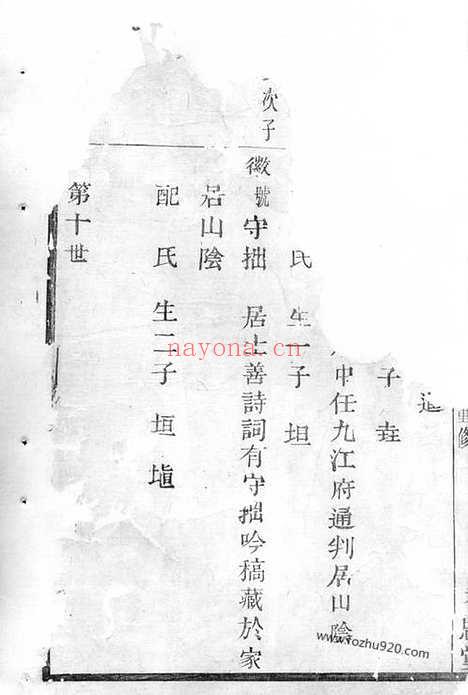 子垚
中任九江府通判居山陰
氏 生一子 坦
次子
徽 號守拙 居士善詩詞有守拙吟稿藏於家
居山陰
配 氏 生二子 垣 塤
第十世
nayona.cn
www.fozhu920.com